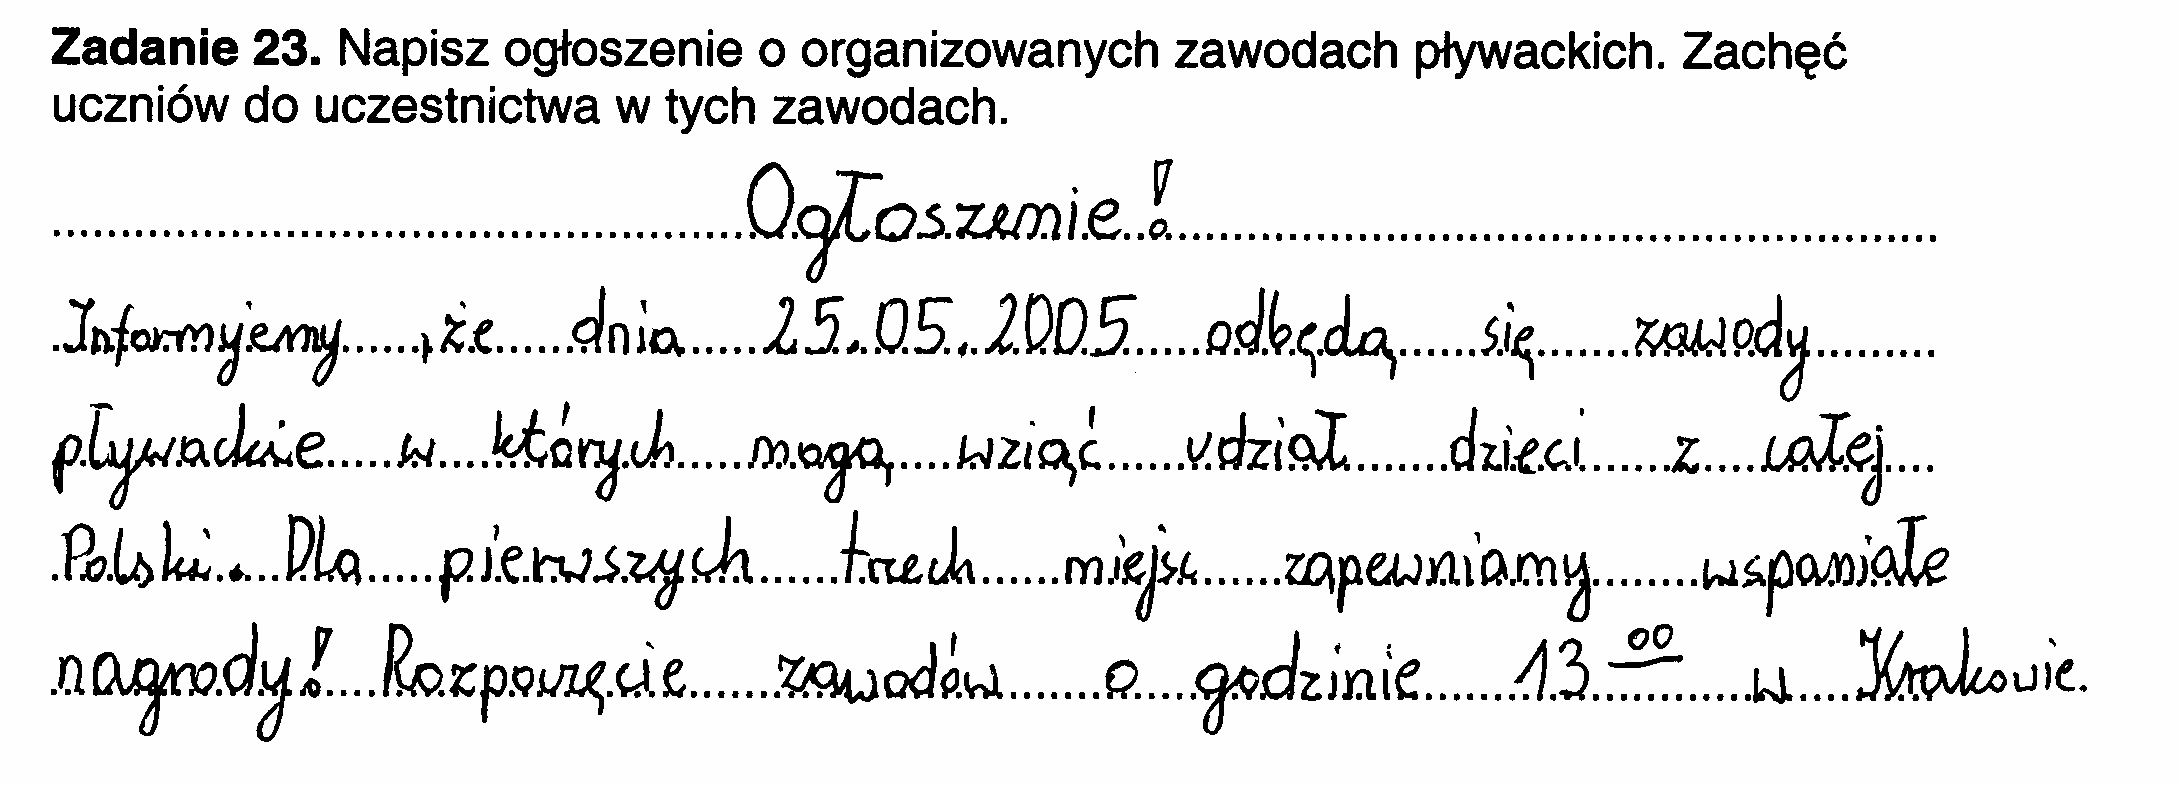 Zadanie 23. Napisz ogłoszenie o organizowanych zawodach pływackich. Zachęć
uczniów do uczestnictwa w tych zawodach.
Ogłoszenie!
Informyjemy ,że dnia 25.05.2005 odbędą się zawody
pływackie w których mogą wziąć udział dzieci z całej
Polski. Dla pierwszych trzech miejsc zapewniamy wspaniałe
nagrody! Rozpoczęcie zawodów o godzinie 13 00 w Krakowie.